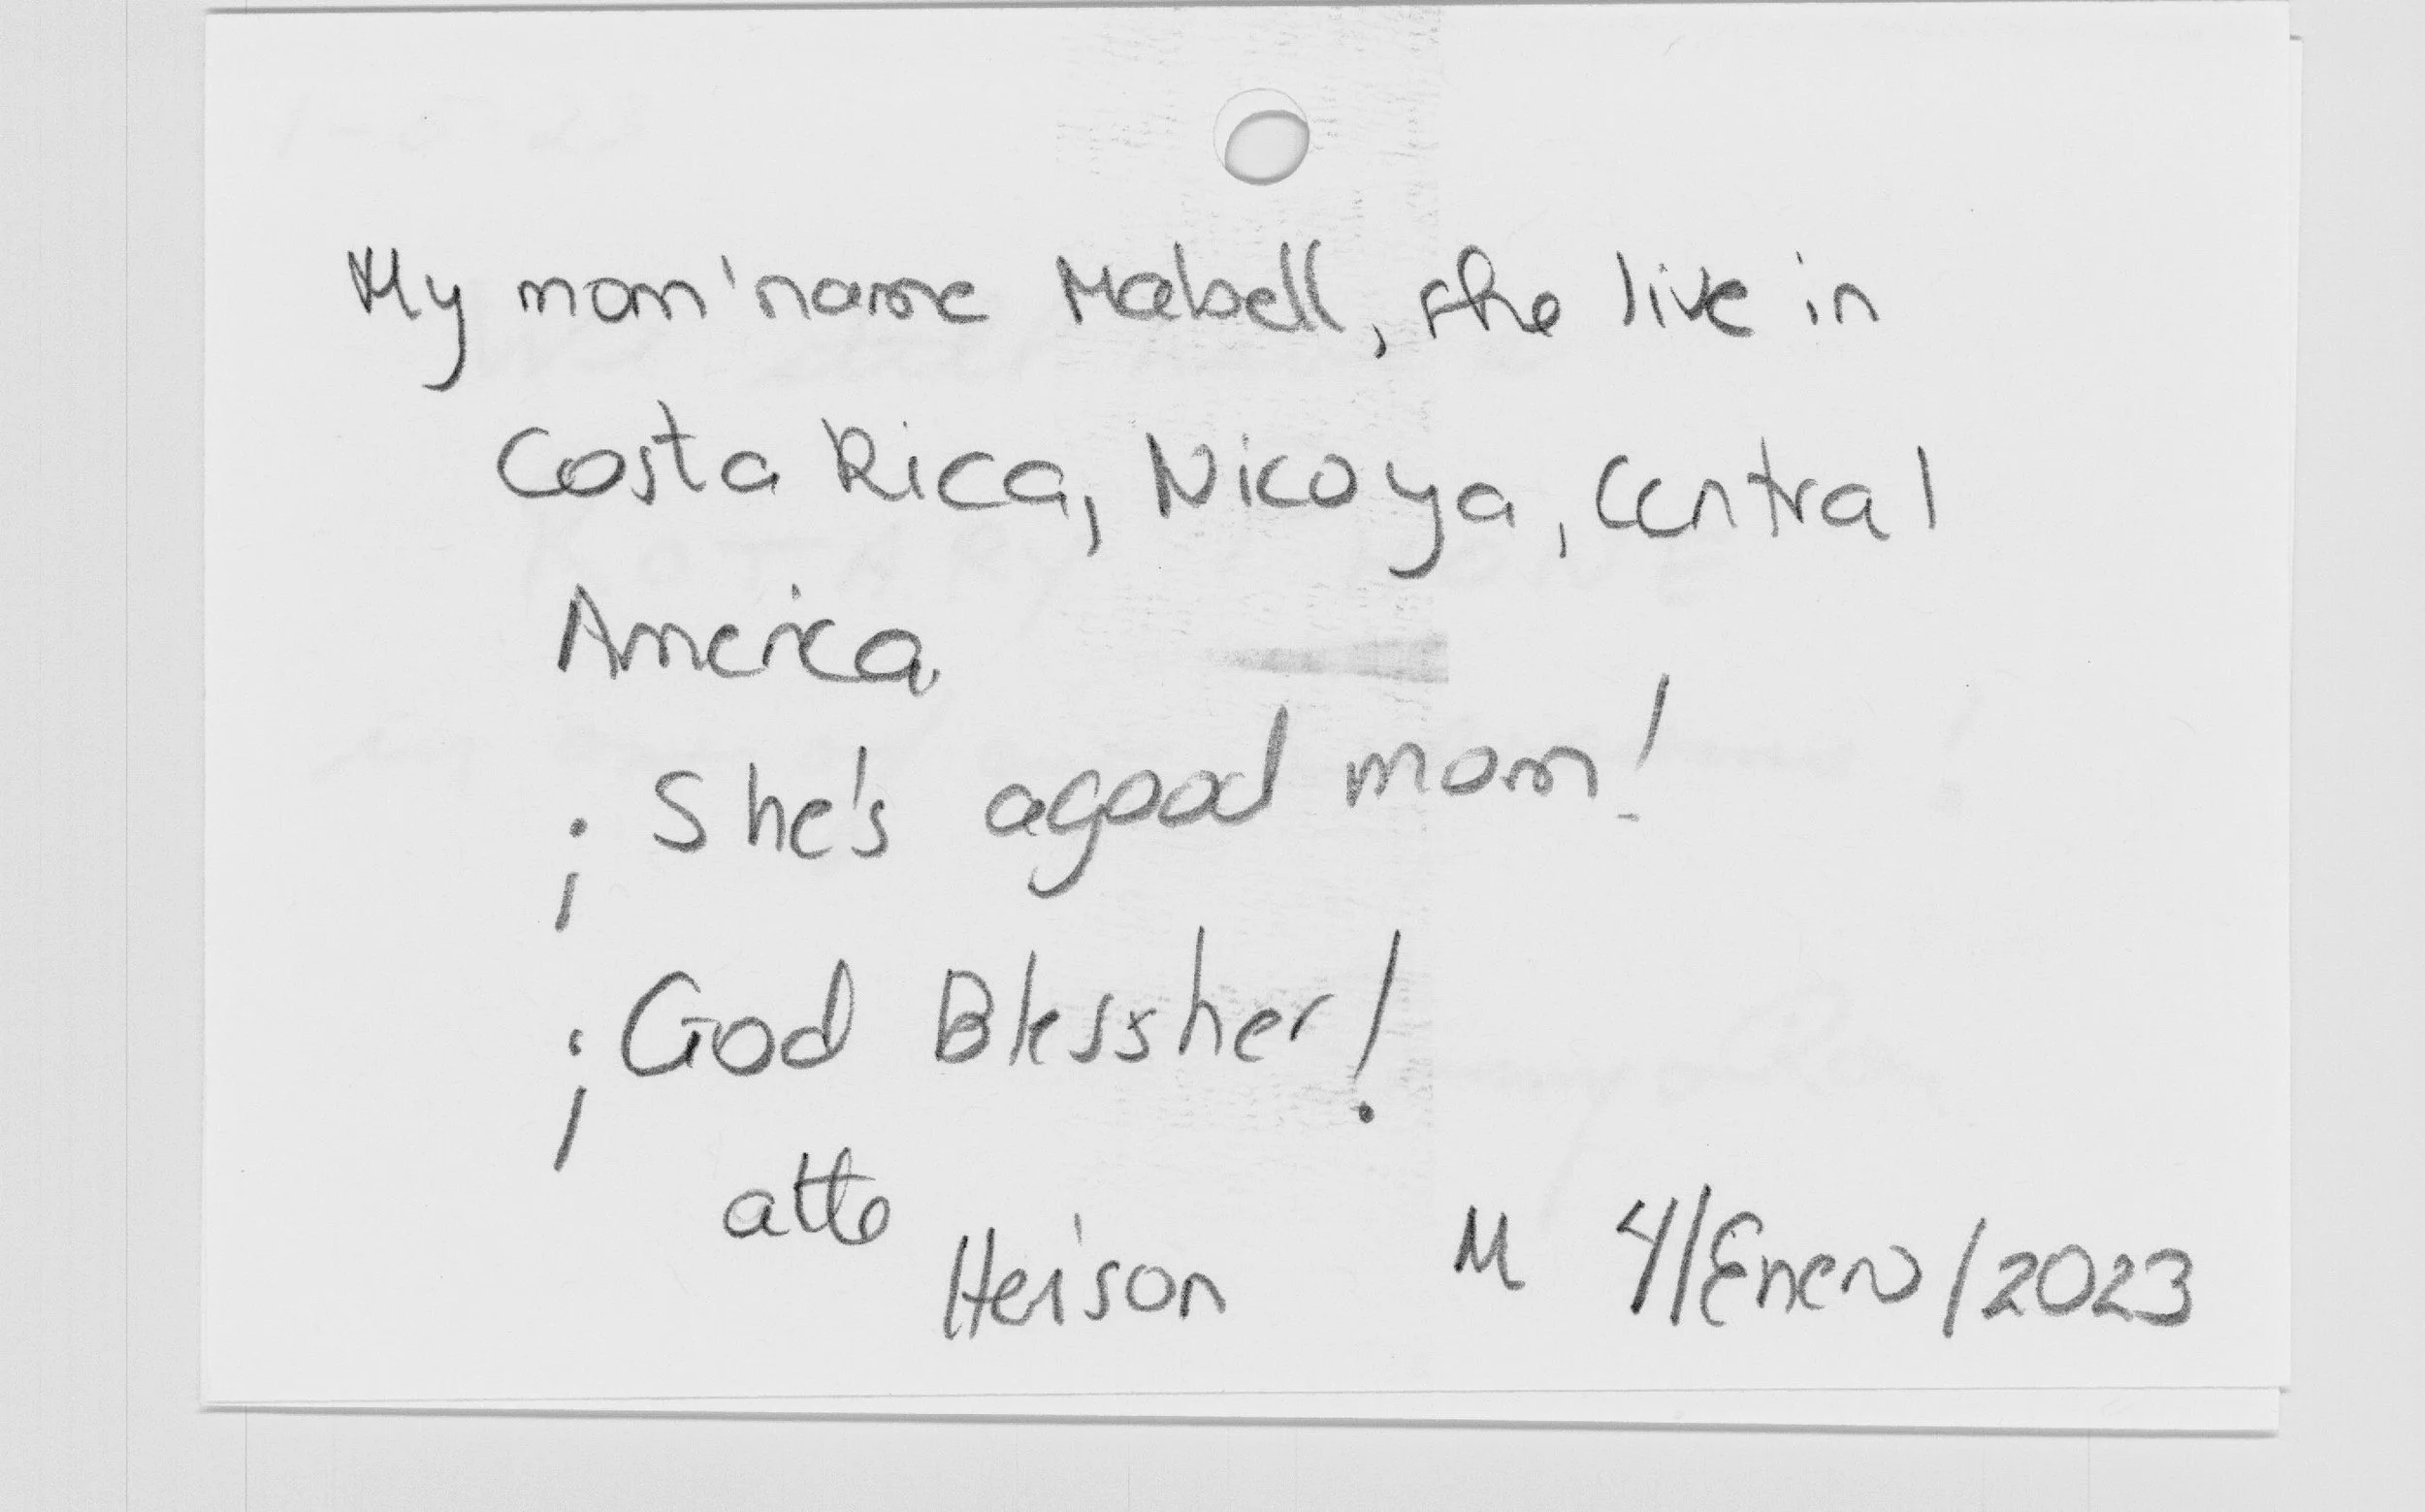 My mom'name Mabell, she live in
Costa Rica, Nicoya, Central
America
¡She's agood mom!
¡God Blessher!
atte
Heison M 4/Enero/2023